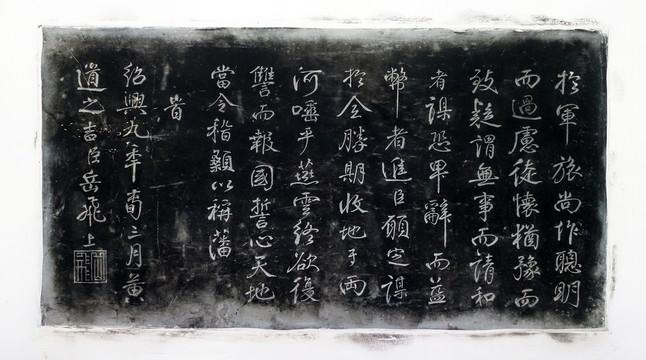 於軍旅尚作聰明
而過慮徒懷猶豫而
致疑謂無事而請和
者謀恐卑辭而益
幣者進臣願定謀
於全勝期收地于兩
河唾手燕雲終欲復
讐而報國誓心天地
當令稽顙以稱藩
旹
紹興九年春三月黃
道之吉臣岳飛上